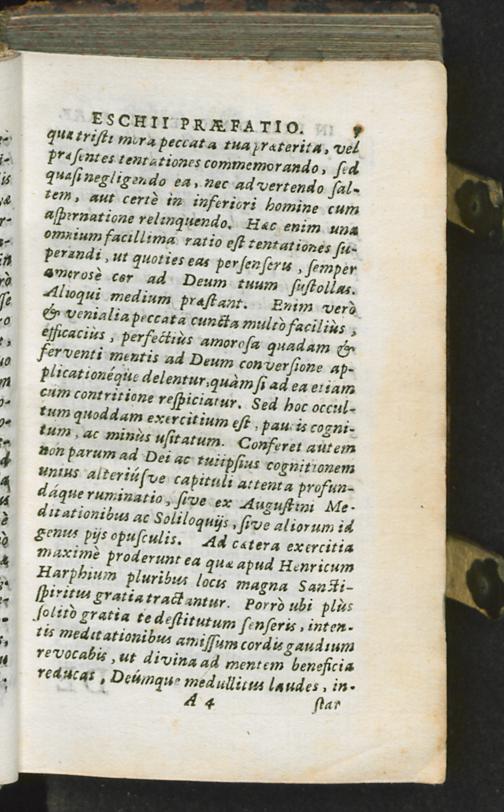 ESCHII PRÆFATIO. 7
quæ tristi mora peccata tua præterita, vel
præsentes tentationes commemorando, sed
quasi negligendo ea, nec advertendo sal-
tem, aut certè in inferiori homine cum
aspernatione relinquendo. Hæc enim una
omnium facillima ratio est tentationes su-
perandi, ut quoties eas persenseris, semper
amorosè cor ad Deum tuum sustollas.
Alioqui medium præstant. Enim verò
& venialia peccata cuncta multò facilius,
efficacius, perfectius amorosa quadam &
ferventi mentis ad Deum conversione ap-
plicationéque delentur, quàm si ad ea etiam
cum contritione respiciatur. Sed hoc occul-
tum quoddam exercitium est, paucis cogni-
tum, ac minùs usitatum. Conferet autem
non parum ad Dei ac tui ipsius cognitionem
unius alteriúsve capituli attenta profun-
dáque ruminatio, sive ex Augustini Me-
ditationibus ac Soliloquijs, sive aliorum id
genus pijs opusculis. Ad cætera exercitia
maximè proderunt ea quæ apud Henricum
Harphium pluribus locis magna Sancti-
spiritus gratia tractantur. Porrò ubi plùs
solitò gratia te destitutum senseris, inten-
tis meditationibus amissum cordis gaudium
revocabis, ut divina ad mentem beneficia
reducas, Deúmque medullitus laudes, in-
A 4 star